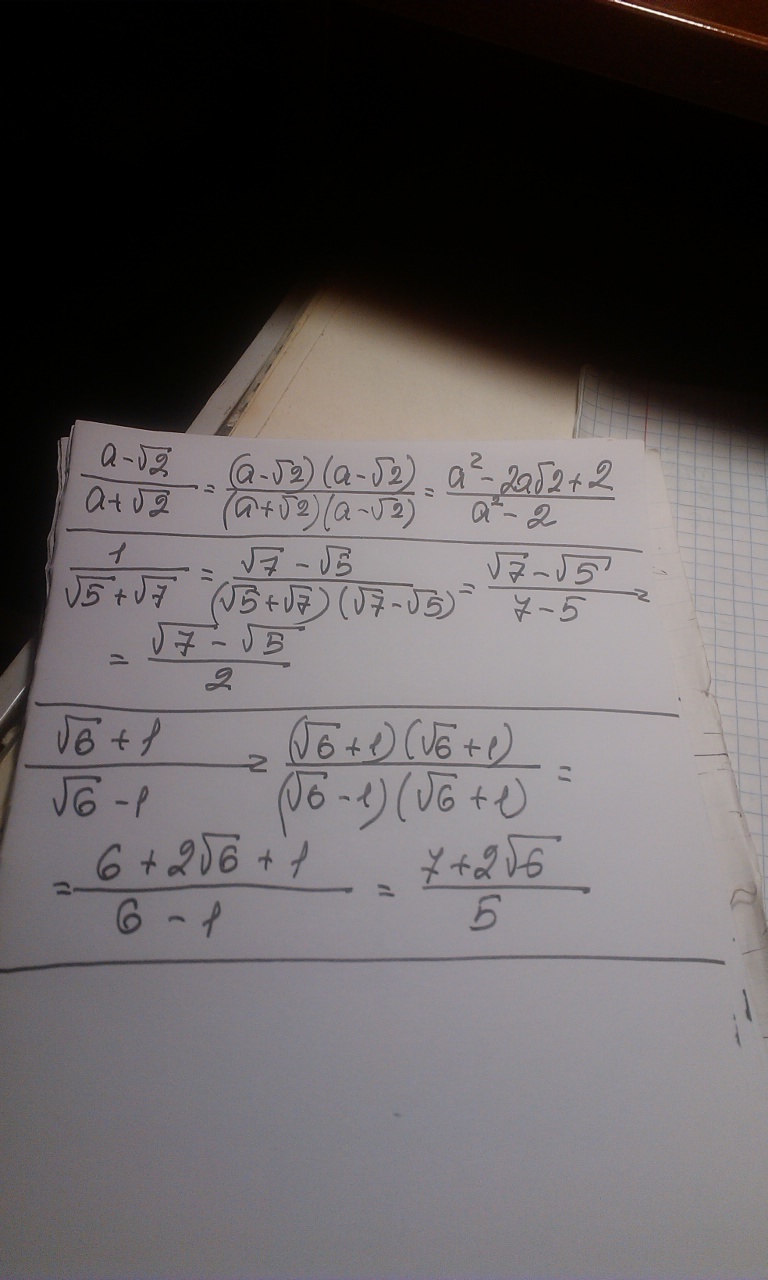 (a-√2)/(a+√2) = ((a-√2)(a-√2))/((a+√2)(a-√2)) = (a²-2a√2+2)/(a²-2)
1/(√5+√7) = (√7-√5)/((√5+√7)(√7-√5)) = (√7-√5)/(7-5) =
= (√7-√5)/2
(√6+1)/(√6-1) = ((√6+1)(√6+1))/((√6-1)(√6+1)) =
= (6+2√6+1)/(6-1) = (7+2√6)/5